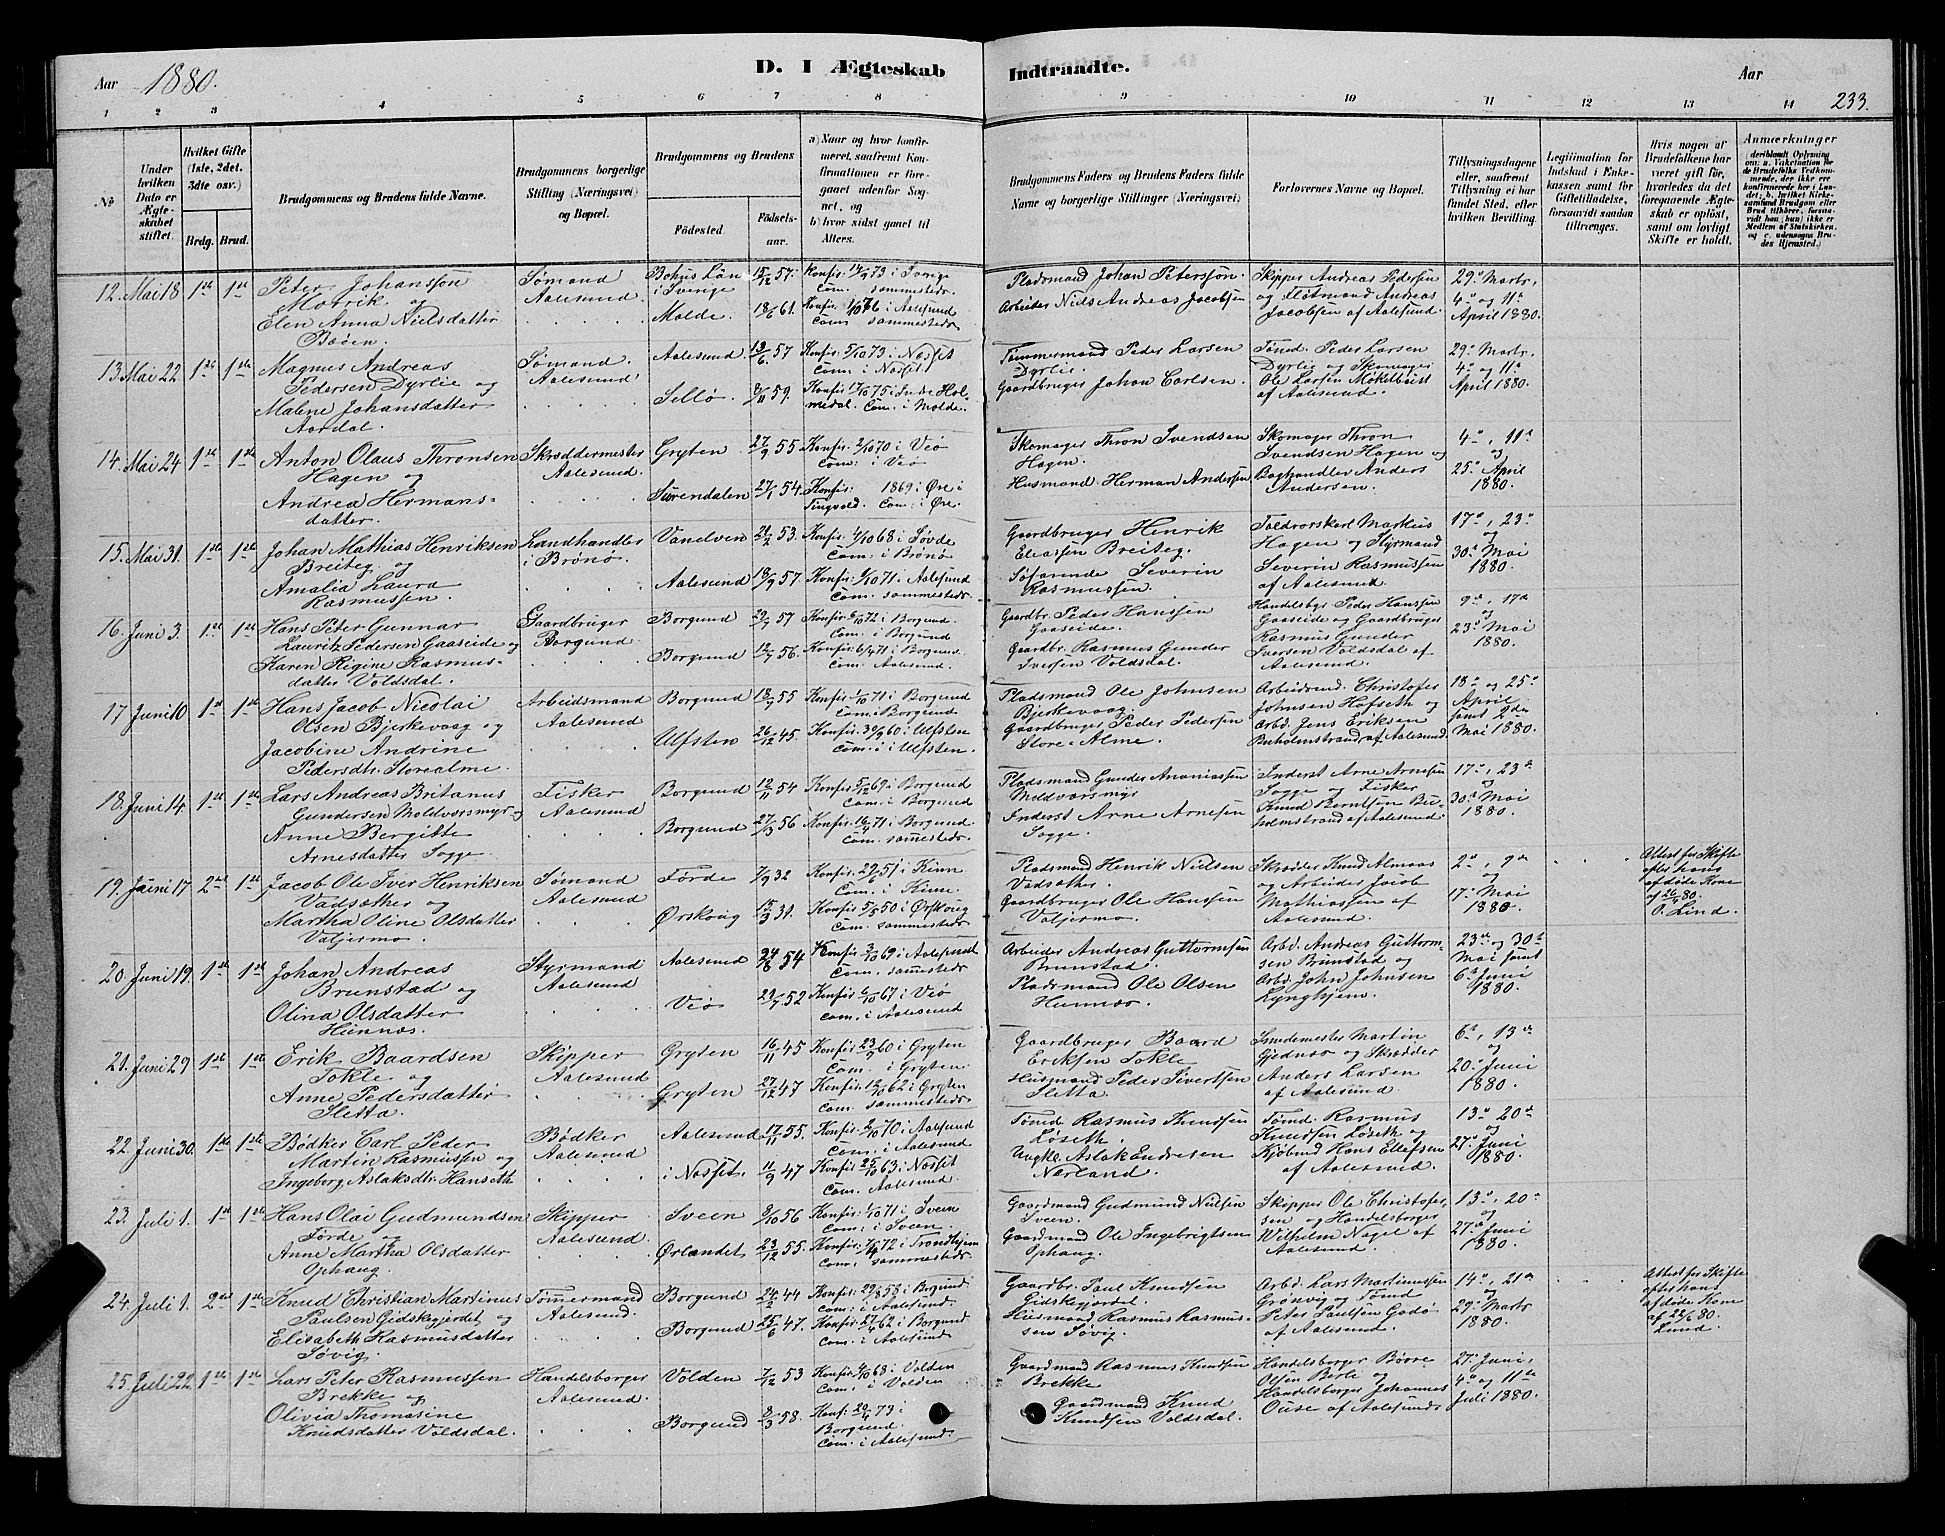 Aar 1880.
D. I Ægteskab Indtraadte.
Aar
233.
1 2 3 4 5 6 7 8 9 10 11 12 13 14
No
Under hvilken Dato er Ægteskabet stiftet.
Hvilket Gifte (1ste, 2det, 3dte osv.)
Brdg. Brud.
Brudgommens og Brudens fulde Navne.
Brudgommens borgerlige Stilling (Næringsvei) og Bopæl.
Brudgommens og Brudens
Fødested. Fødselsaar.
a) Naar og hvor konfirmeret, saafremt Konfirmationen er foregaaet udenfor Sognet, og b) hvor sidst gaaet til Alters.
Brudgommens Faders og Brudens Faders fulde Navne og borgerlige Stillinger (Næringsvei)
Forlovernes Navne og Bopæl.
Tillysningsdagene eller, saafremt Tillysning ei har fundet Sted, efter hvilken Bevilling.
Legitimation for Indskud i Enkekassen samt for Giftetilladelse, forsaavidt saadan tiltrænges.
Hvis nogen af Brudefolkene har været gift før, hvorledes da det foregaaende Ægteskab er opløst, samt om lovligt Skifte er holdt.
Anmærkninger
12. Mai 18 1ste 1ste Peter Johanssøn
Søemand Aalesund
Bohus Län i Sverige 15/12 57.
Elen Anna Nielsdatter
Molde. 18/6 61.
Pladsmand Johan Peterssøn.
Arbeider Niels Andreas Jacobsen
Skipper Andreas Pedersen
Jacobsen af Aalesund.
29de Marts, 4de og 11te April 1880.
13. Mai 22. 1ste 1ste Magnus Andreas Pedersen Dyrlie og Malene Johansdatter Aardal.
Sømand. Aalesund.
Aalesund. 13/6 57
Tømmermand Peder Larsen Dyrlie.
Gaardbruger Johan Carlsen.
Ole Larsen Møkelbust af Aalesund.
29de Marts, 4de og 11te April 1880.
14. Mai 24 1ste 1ste Anton Olaus Thronsen Hagen og Andrea Hermansdatter.
Skræddermester Aalesund.
Gryten 27/9 55 Konfir: 2/10 70 i Veø Com: i Veø
Surendalen 27/1 54. Konfir: 1869 i Øre i Tingvold. Com: i Øre.
Skomager Thron Svendsen Hagen.
Husmand Herman Andersen
Skomager Thron Svendsen Hagen og Baghandler Anders Andersen.
4de, 11te og 25de April 1880.
15. Mai 31. 1ste 1ste Johan Mathias Henriksen Breiteg og Amalia Laura Rasmussen.
Landhandler i Brønø.
Vanelven 21/2 53. Konfir: 1/10 68 i Søvde Com: i Brønø
Aalesund 18/9 57. Konfir: 1/10 71 i Aalesund Com. sammesteds.
Gaardbruger Henrik Eliassen Breiteg.
Søfarende Severin Rasmussen.
Toldvorskerl Markus Hagen og Styrmand Severin Rasmussen af Aalesund.
17de, 23de og 30te Mai 1880.
16. Juni 3. 1ste 1ste Hans Peter Gunnar Lauritz Pedersen Gaaseide og Karen Regine Rasmusdatter Voldsdal.
Gaardbruger Borgund
Borgund 29/7 57 Konfir: 6/10 72 i Borgund. Com. i Borgund
Borgund 12/7 56. Konfir: 6/4 71 i Borgund Com. Aalesund.
Gaardbr. Peder Hanssen Gaaseide.
Gaardbr. Rasmus Gunder Iversen Voldsdal.
Handelsbgr Peder Hanssen Gaaseide og Gaardbruger Rasmus Gunder Iversen Voldsdal af Aalesund.
9de, 17de og 23de Mai 1880.
17 Juni 10. 1ste 1ste Hans Jacob Nicolai Olsen Bjerkevaag og Jacobine Andrine Pedersdtr. Storealme.
Arbeidsmand Aalesund
Borgund 18/9 55 Konfir: 1/10 71 i Borgund Com. i Borgund
Ulfsten 26/12 45. Konfir: 30/9 60 i Ulfsten Com. i Ulfsten.
Pladsmand Ole Johnsen Bjerkevaag.
Gaardbruger Peder Pedersen Store-Alme.
Arbeidsmd. Christofer Johnsen Hofseth og Arbd. Jens Eriksen Buholmstrand af Aalesund.
18de og 25de April samt 2den Mai 1880.
18. Juni 14. 1ste 1ste Lars Andreas Britanus Gundersen Moldvørsmyr og Anne Bergitte Arnesdatter Sogge.
Fisker Aalesund
Borgund 12/11 54 Konfir: 5/12 69 i Borgund Com. i Borgund
Borgund 27/3 56 Konfir: 16/4 71 i Borgund. Com: sammesteds.
Pladsmand Gunder Ananiassen Moldvørsmyr
Inderst Arne Arnesen Sogge.
Inderst Arne Arnesen Sogge og Fisker Knud Berntsen Buholmstrand af Aalesund.
17de, 23de og 30te Mai 1880.
19. Juni 17. 2det 1ste Jacob Ole Iver Henriksen Vadsæther og Martha Oline Olsdatter Valjermo.
Sømand Aalesund
Førde 7/9 32 Konfir: 29/6 51 i Kinn Com. i Kinn.
Ørskoug 15/3 31. Konfir: 5/5 50 i Ørskoug Com. sammesteds.
Pladsmand Henrik Nielsen Vadsæther.
Gaardbruger Ole Hansen Valjermo.
Skrædder Knud Almaas og Arbeider Jacob Mathiassen af Aalesund.
2de, 9de og 17de Mai 1880.
Attest for Skifte efter hans afdøde Kone af 26/4 80. O. Lind.
20. Juni 19. 1ste 1ste Johan Andreas Brunstad og Olina Olsdatter Hunnæs.
Styrmand Aalesund
Aalesund 24/8 54 Konfir: 3/10 69 i Aalesund Com. sammesteds
Veø 23/7 52 Konfir: 6/10 67 i Veø Com. i Aalesund
Arbeider Andreas Guttormsen Brunstad.
Pladsmand Ole Olsen Hunnæs.
Arbd. Andreas Guttormsen Brunstad og Arbd. John Johnsen Lynghjem.
23de og 30te Mai samt 6te Juni 1880.
21. Juni 29 1ste 1ste Erik Baardsen Tokle og Anne Pedersdatter Sletta.
Skipper Aalesund
Gryten 16/11 45 Konfir: 23/9 60 i Gryten Com. i Gryten.
Gryten 27/12 47 Konfir: 12/10 62 i Gryten Com: sammesteds
Gaardbruger Baard Eriksen Tokle
Husmand Peder Sivertsen Sletta.
Smedemester Martin Gjednæs og Skrædder Anders Larsen af Aalesund.
6te, 13de og 20de Juni 1880.
22. Juni 30. 1ste 1ste Bødker Carl Peder Martin Rasmussen og Ingeborg Aslaksdtr. Hanseth
Bødker Aalesund
Aalesund 17/11 55. Konfir: 2/10 70 i Aalesund Com: i Aalesund
i Nosset. 11/9 47 Konfir: 25/10 63 i Nosset Com. Aalesund.
Tømd Rasmus Knudsen Løseth.
Aslak Endresen Nerland.
Tømd. Rasmus Knudsen Løseth og Kjøbmd Hans Ellefsen af Aalesund.
13de, 20de og 27de Juni 1880.
23. Juli 1. 1ste 1ste Hans Olai Gudmundsen Førde og Anne Martha Olsdatter Ophaug.
Skipper Aalesund.
Sveen 3/10 56 Konfir: 1/10 71 i Sveen Com: i Sveen.
Ørlandet. 23/12 55. Konfir: 7/4 72 i Trondhjem Com: sammesteds.
Gaardmand Gudmund Nielsen Sveen.
Gaardmand Ole Ingebrigtsen Ophaug.
Skipper Ole Christofersen og Handelsborger Wilhelm Nagel af Aalesund.
13de, 20de og 27de Juni 1880.
24. Juli 1. 2det 1ste Knud Christian Martinus Paulsen Gidskegjerdet og Elisabeth Rasmusdatter Søvig.
Tømmermand Aalesund.
Borgund 24/2 44 Konfir: 29/8 58 i Borgund Com: i Aalesund.
Borgund 25/6 47. Konfir: 27/4 62 i Borgund Com: i Aalesund.
Gaardbr. Paul Knudsen Gidskegjerdet.
Husmand Rasmus Rasmussen Søvig.
Arbd. Lars Martinussen Grønvig og Tømd Peter Paulsen Godø af Aalesund.
14de, 21de og 29de Marts 1880.
Attest for Skifte efter hans afdøde Kone af 22/6 80. Lund.
25. Juli 22. 1ste 1ste Lars Peter Rasmussen Brekke og Olivia Thomasine Knudsdatter Voldsdal.
Handelsborger Aalesund.
Volden 7/12 53 Konfir: 4/10 68 i Volden Com: i Volden
Borgund 8/3 58. Konf: 20/4 73 i Borgund. Com. i Aalesund.
Gaardmand Rasmus Knudsen Brekke
Gaardmand Knud Knudsen Voldsdal.
Handelsborger Børre Olsen Birle og Handelsborger Johannes Ouse af Aalesund.
27de Juni, 4de og 11te Juli 1880.